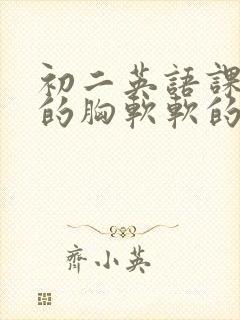 初二英語課
的胸軟軟的
齊小英